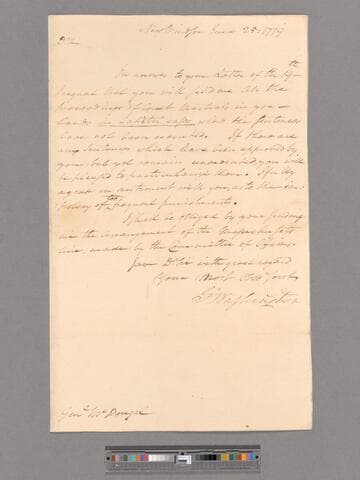 New Windsor June 25th 1779
Sir
In answer to your Letter of the 19th
I request that you will send me all the
proceedings of Court Martials in your
hands in Capital cases where the Sentences
have not been executed. If there are
any Sentences which have been approved by
you, but yet remain unexecuted you will
be pleased to particularize them. I fully
agree in sentiment with you, as to the im-
policy of frequent punishments.
I shall be obliged by your sending
me the arrangement of the Massachusetts
line, made by the Committee of
I am D Sir with great regard
Your Most Obed Servt
G Washington
Genl McDougal